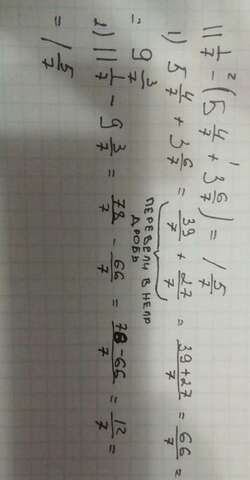 11 1/7 - ² (5 4/7 + ¹ 3 6/7) = 1 5/7
1) 5 4/7 + 3 6/7 = 39/7 + 27/7 = 39+27/7 = 66/7 =
ПЕРЕВЕЛИ В НЕПР
ДРОБЬ
= 9 3/7
2) 11 1/7 - 9 3/7 = 78/7 - 66/7 = 78-66/7 = 12/7 =
= 1 5/7